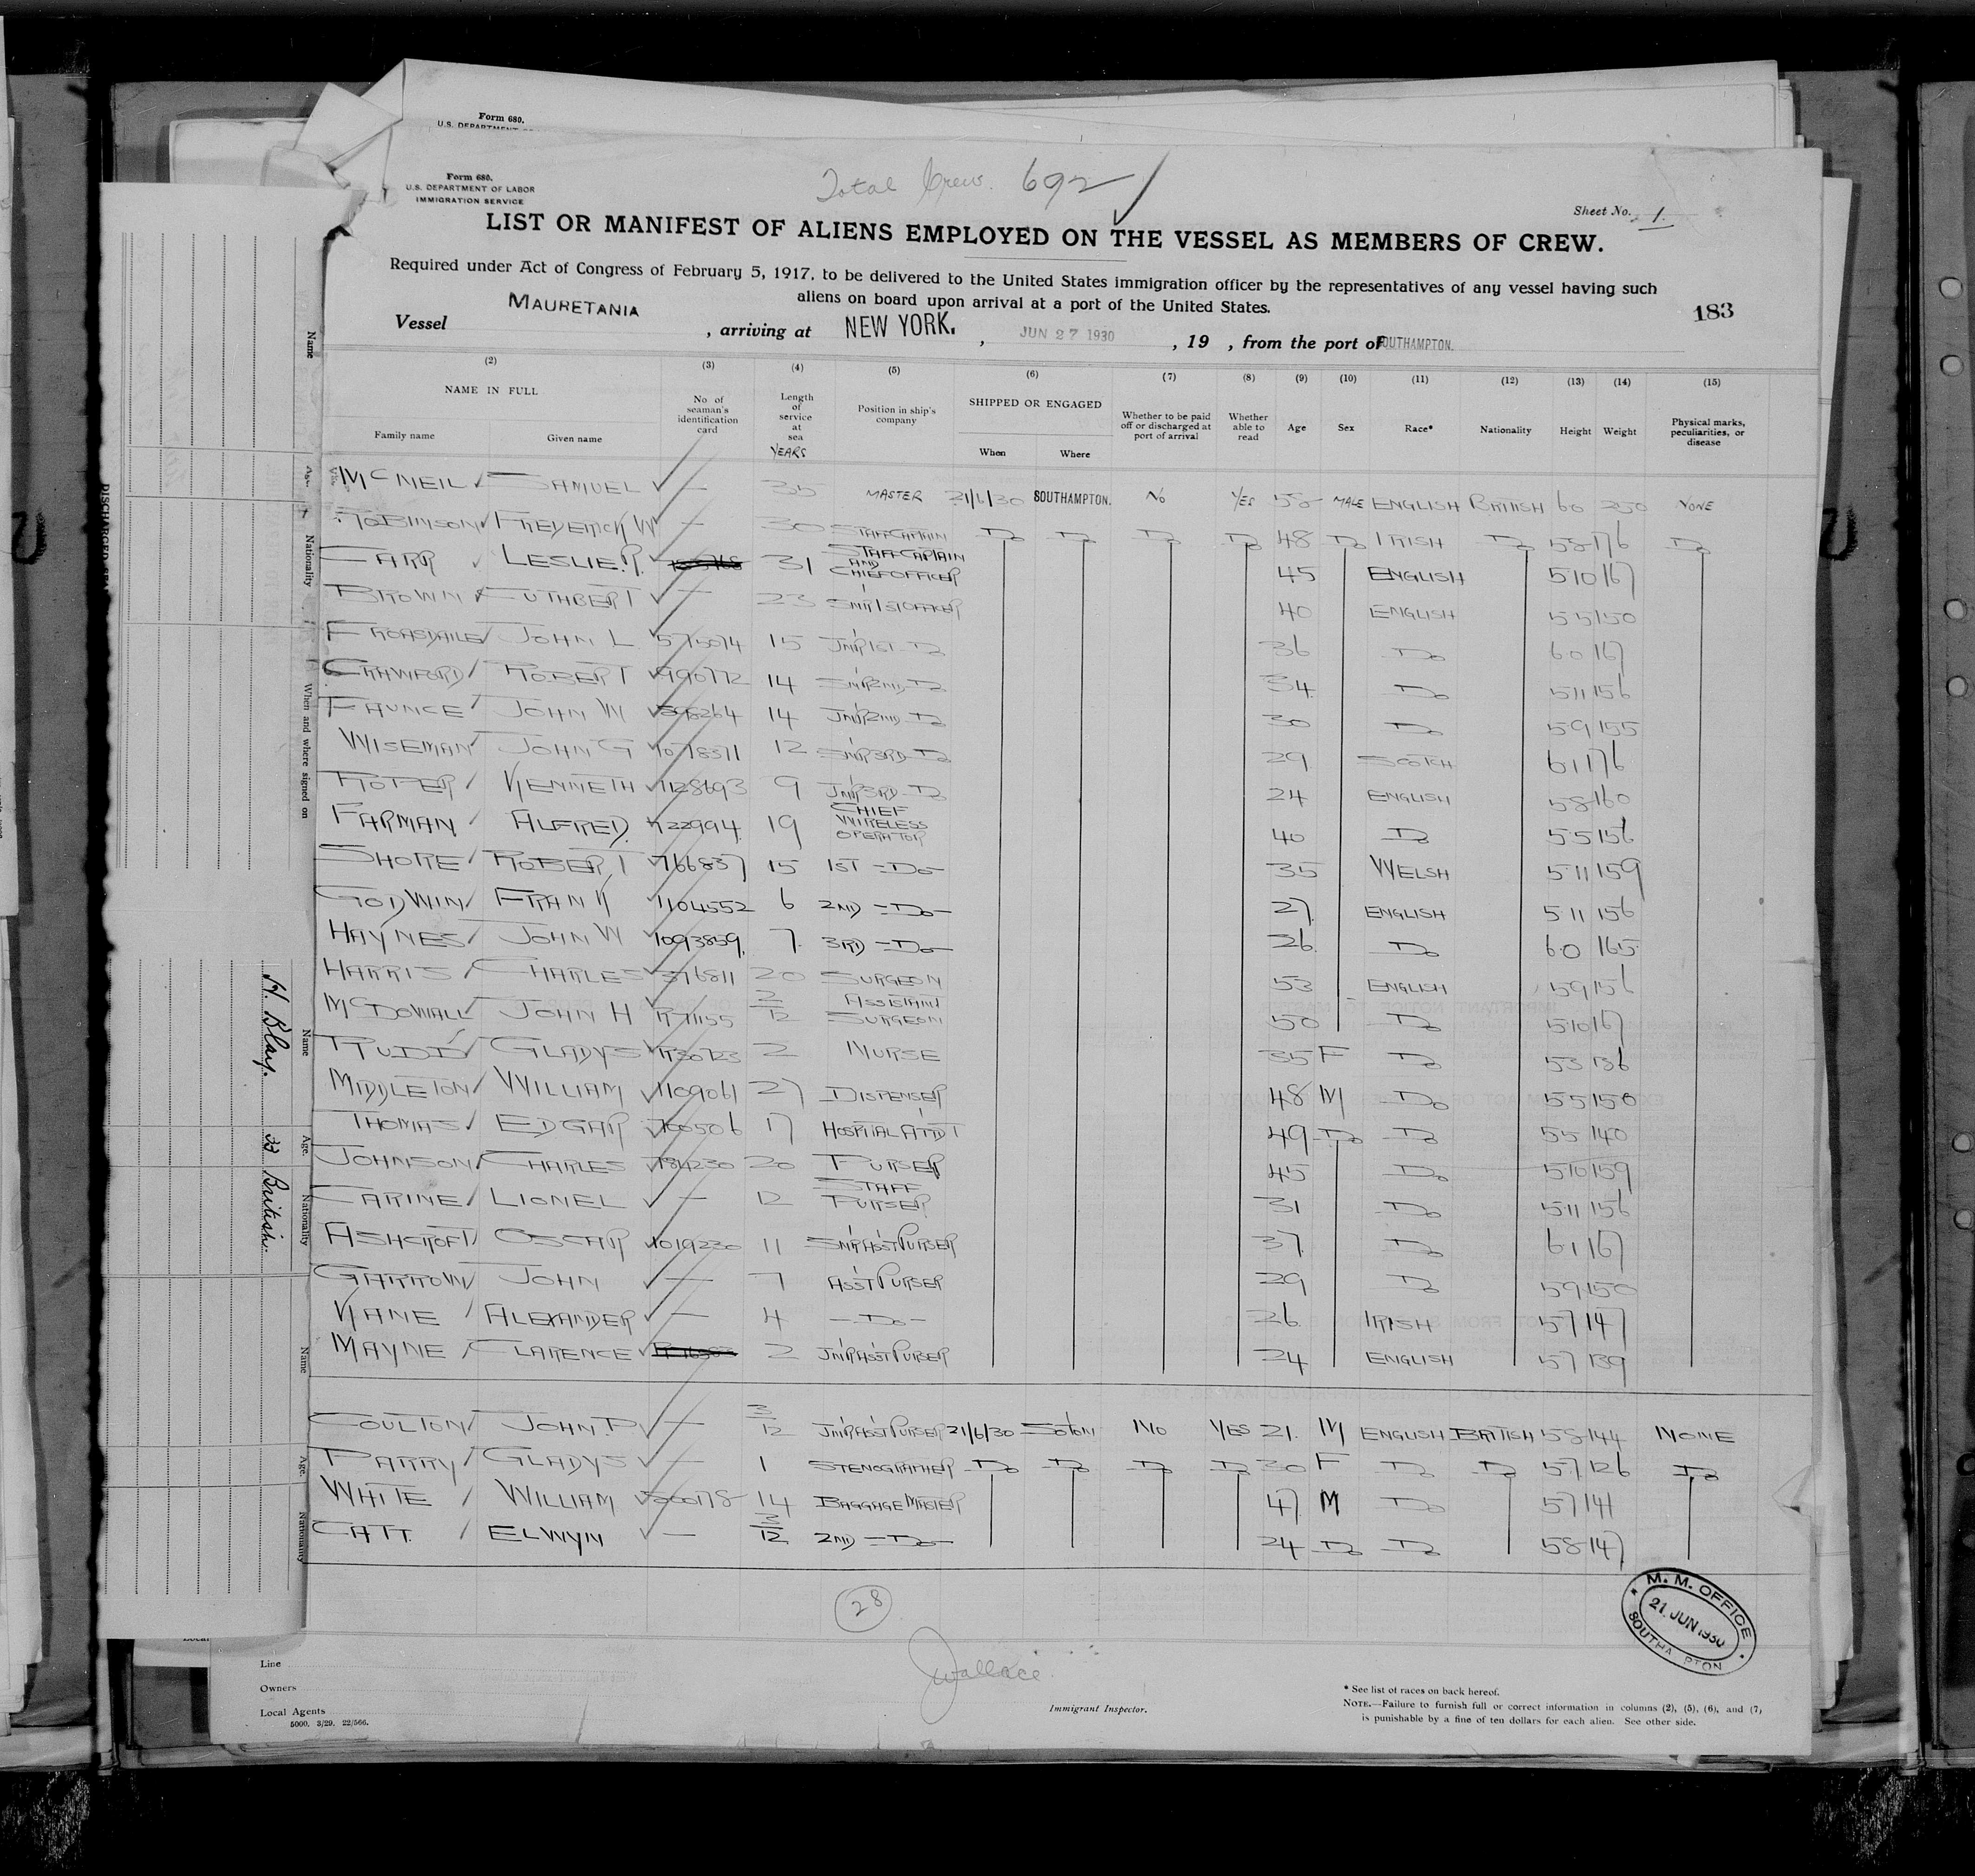 Form 680.
Form 680.
U.S. DEPARTMENT OF LABOR
IMMIGRATION SERVICE
Total Crew. 692
Sheet No. 1.
LIST OR MANIFEST OF ALIENS EMPLOYED ON THE VESSEL AS MEMBERS OF CREW.
Required under Act of Congress of February 5, 1917, to be delivered to the United States immigration officer by the representatives of any vessel having such
aliens on board upon arrival at a port of the United States.
183
Vessel MAURETANIA , arriving at NEW YORK. , JUN 27 1930 , 19 , from the port of SOUTHAMPTON.
(2) (3) (4) (5) (6) (7) (8) (9) (10) (11) (12) (13) (14) (15)
NAME IN FULL
Family name Given name
No of seaman's identification card
Length of service at sea YEARS
Position in ship's company
SHIPPED OR ENGAGED
When Where
Whether to be paid off or discharged at port of arrival
Whether able to read
Age Sex Race* Nationality Height Weight
Physical marks, peculiarities, or disease
McNEIL SAMUEL — 35 MASTER 21/6/30 SOUTHAMPTON. No YES 58 MALE ENGLISH BRITISH 60 250 NONE
ROBINSON FREDERICK W — 30 STAFF CAPTAIN Do Do Do Do 48 Do IRISH Do 58 176 Do
CARR LESLIE.R. 31 STAFF CAPTAIN AND CHIEF OFFICER 45 ENGLISH 510 167
BROWN CUTHBERT — 23 SNR 1ST OFFICER 40 ENGLISH 55 150
JOHN L 575074 15 JNR 1ST Do 36 Do 60 167
CRAWFORD ROBERT 990772 14 SNR 2ND Do 34 Do 511 156
FAUNCE JOHN W 14 JNR 2ND Do 30 Do 59 155
WISEMAN JOHN G 1018311 12 SNR 3RD Do 29 SCOTCH 61 176
ROPER KENNETH 1128693 9 JNR 3RD Do 24 ENGLISH 58 160
FARMAN ALFRED. 722994 19 CHIEF WIRELESS OPERATOR 40 Do 55 156
SHORE ROBERT 766837 15 1ST —Do— 35 WELSH 511 159
GODWIN FRANK 1104552 6 2ND —Do— 27. ENGLISH 511 156
HAYNES JOHN W 1093859. 7. 3RD —Do— 26. Do 60 165
HARRIS CHARLES 576811 20 SURGEON 53 ENGLISH 59 156
McDOWALL JOHN H R71155 2/12 ASSISTANT SURGEON 50 Do 510 167
RUDD GLADYS R30723 2 NURSE 35 F Do 53 136
MIDDLETON WILLIAM 1109061 27 DISPENSER 48 M Do 55 150
THOMAS EDGAR 700506 17 HOSPITAL ATTDT 49 Do Do 55 140
JOHNSON CHARLES 784230 20 PURSER 45 Do 510 159
CARINE LIONEL — 12 STAFF PURSER 31 Do 511 156
ASHCROFT OSCAR 1019230 11 SNR ASST PURSER 37. Do 61 167
GARROW JOHN — 7 ASST PURSER 29 Do 59 150
KANE ALEXANDER — 4 —Do— 26. IRISH 57 147
MAYNE CLARENCE 2 JNR ASST PURSER 24 ENGLISH 57 139
COULTON JOHN.P. — 3/12 JNR ASST PURSER 21/6/30 SOTON No YES 21. M ENGLISH BRITISH 58 144 NONE
PARRY GLADYS — 1 STENOGRAPHER Do Do Do Do 30 F Do Do 57 126 Do
WHITE WILLIAM 14 BAGGAGE MASTER 47 M Do 57 141
CATT. ELWYN — 3/12 2ND —Do— 24 Do Do 58 147
28
M. M. OFFICE
21. JUN 1930
SOUTHA PTON
JWallace.
Immigrant Inspector.
Line
Owners
Local Agents
5000. 3/29. 22/566.
* See list of races on back hereof.
NOTE.—Failure to furnish full or correct information in columns (2), (5), (6), and (7)
is punishable by a fine of ten dollars for each alien. See other side.
Name
Nationality
When and where signed on
Name
Age.
Nationality
Name
Age.
Nationality
H. Blay. 33 British.